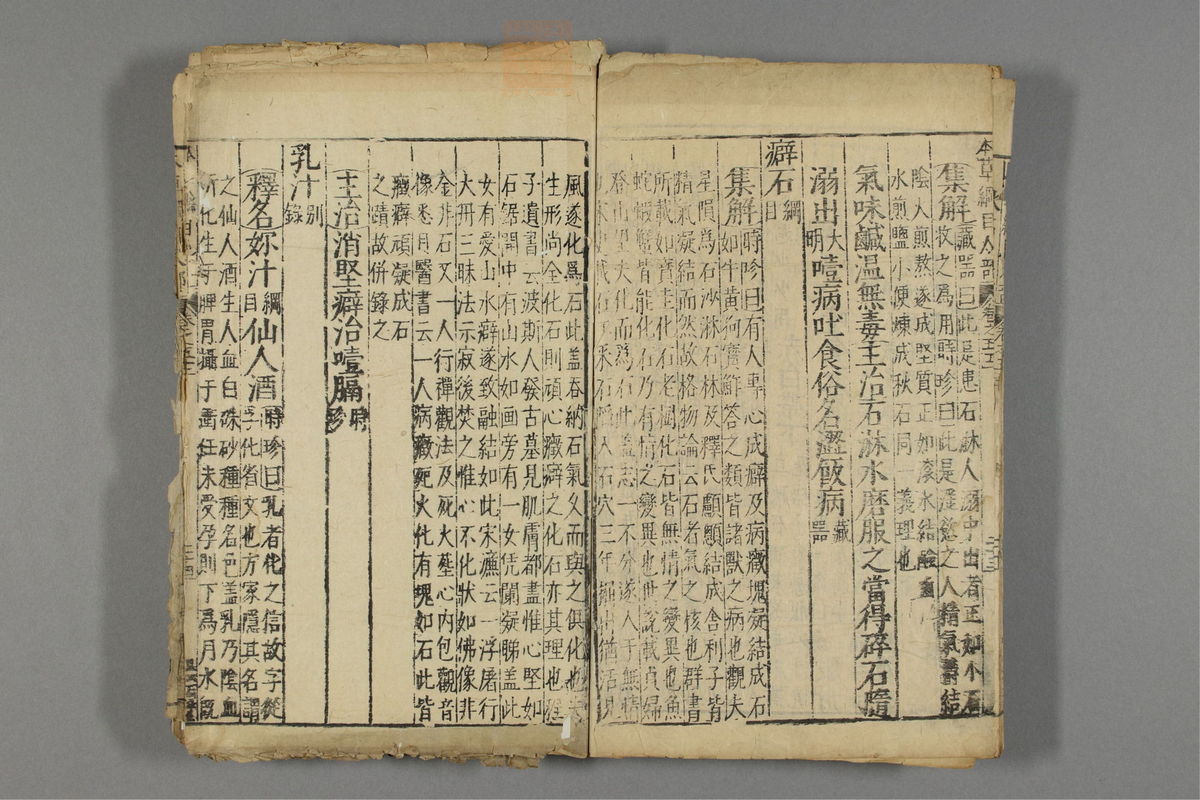 本草綱目人部
集解藏器曰此是患石淋人溺中出者正如小石
收之為用時珍曰此是淫慾之人精氣鬱結
陰火煎熬遂成堅質正如滾水結鹼
水煎鹽小便煉成秋石同一義理也
氣味鹹溫無毒主治石淋水磨服之當得碎石隨
溺出大明噎病吐食俗名澀飯病藏器
癖石綱目
集解時珍曰有人專心成癖及病癥塊凝結成石
如牛黃狗寶鮓荅之類皆諸獸之病也觀夫
星隕為石沙淋石淋及釋氏顱顖結成舍利子皆
精氣凝結而然故格物論云石者氣之核也群書
所載如寶圭化石老松化石皆無情之變異也魚
蛇蝦蟹皆能化石乃有情之變異也世說載貞婦
登山望夫化而為石此蓋志一不分遂入于無情
采石陷入石穴三年掘出猶活見
風遂化為石此蓋吞納石氣久而與之俱化也夫
生形尚全化石則頑心癥癖之化石亦其理也程
子遺書云波斯人發古墓見肌膚都盡惟心堅如
石鋸開中有山水如画旁有一女凭闌凝睇蓋此
女有愛山水癖遂致融結如此宋濂云一浮屠行
大丹三昧法示寂後焚之惟心不化狀如佛像非
金非石又一人行禪觀法及死火葬心內包觀音
像悉具醫書云一人病癥死火化有塊如石此皆
癥癖頑凝成石
之蹟故併錄之
主治消堅癖治噎膈時珍
乳汁別錄
釋名妳汁綱目仙人酒時珍曰乳者化之信故字從
孚化省文也方家隱其名謂
之仙人酒生人血白硃砂種種名色蓋乳乃陰血
所化生于脾胃攝于衝任未受孕則下為月水既